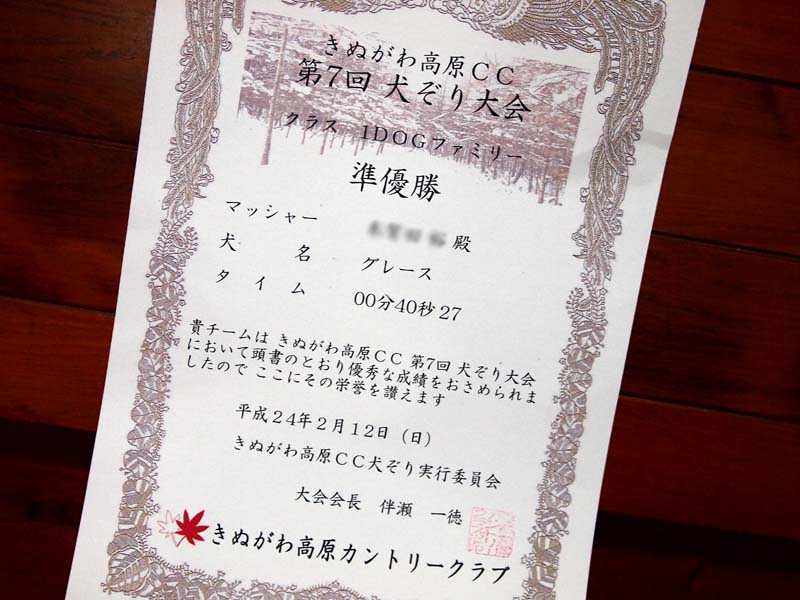 きぬがわ高原CC
第7回 犬ぞり大会
クラス 1DOGファミリー
準優勝
マッシャー 殿
犬名 グレース
タイム 00分40秒27
貴チームは きぬがわ高原CC 第7回 犬ぞり大会
において頭書のとおり優秀な成績をおさめられま
したので ここにその栄誉を讃えます
平成24年2月12日（日）
きぬがわ高原CC犬ぞり実行委員会
大会会長 伴瀬 一徳
きぬがわ高原カントリークラブ